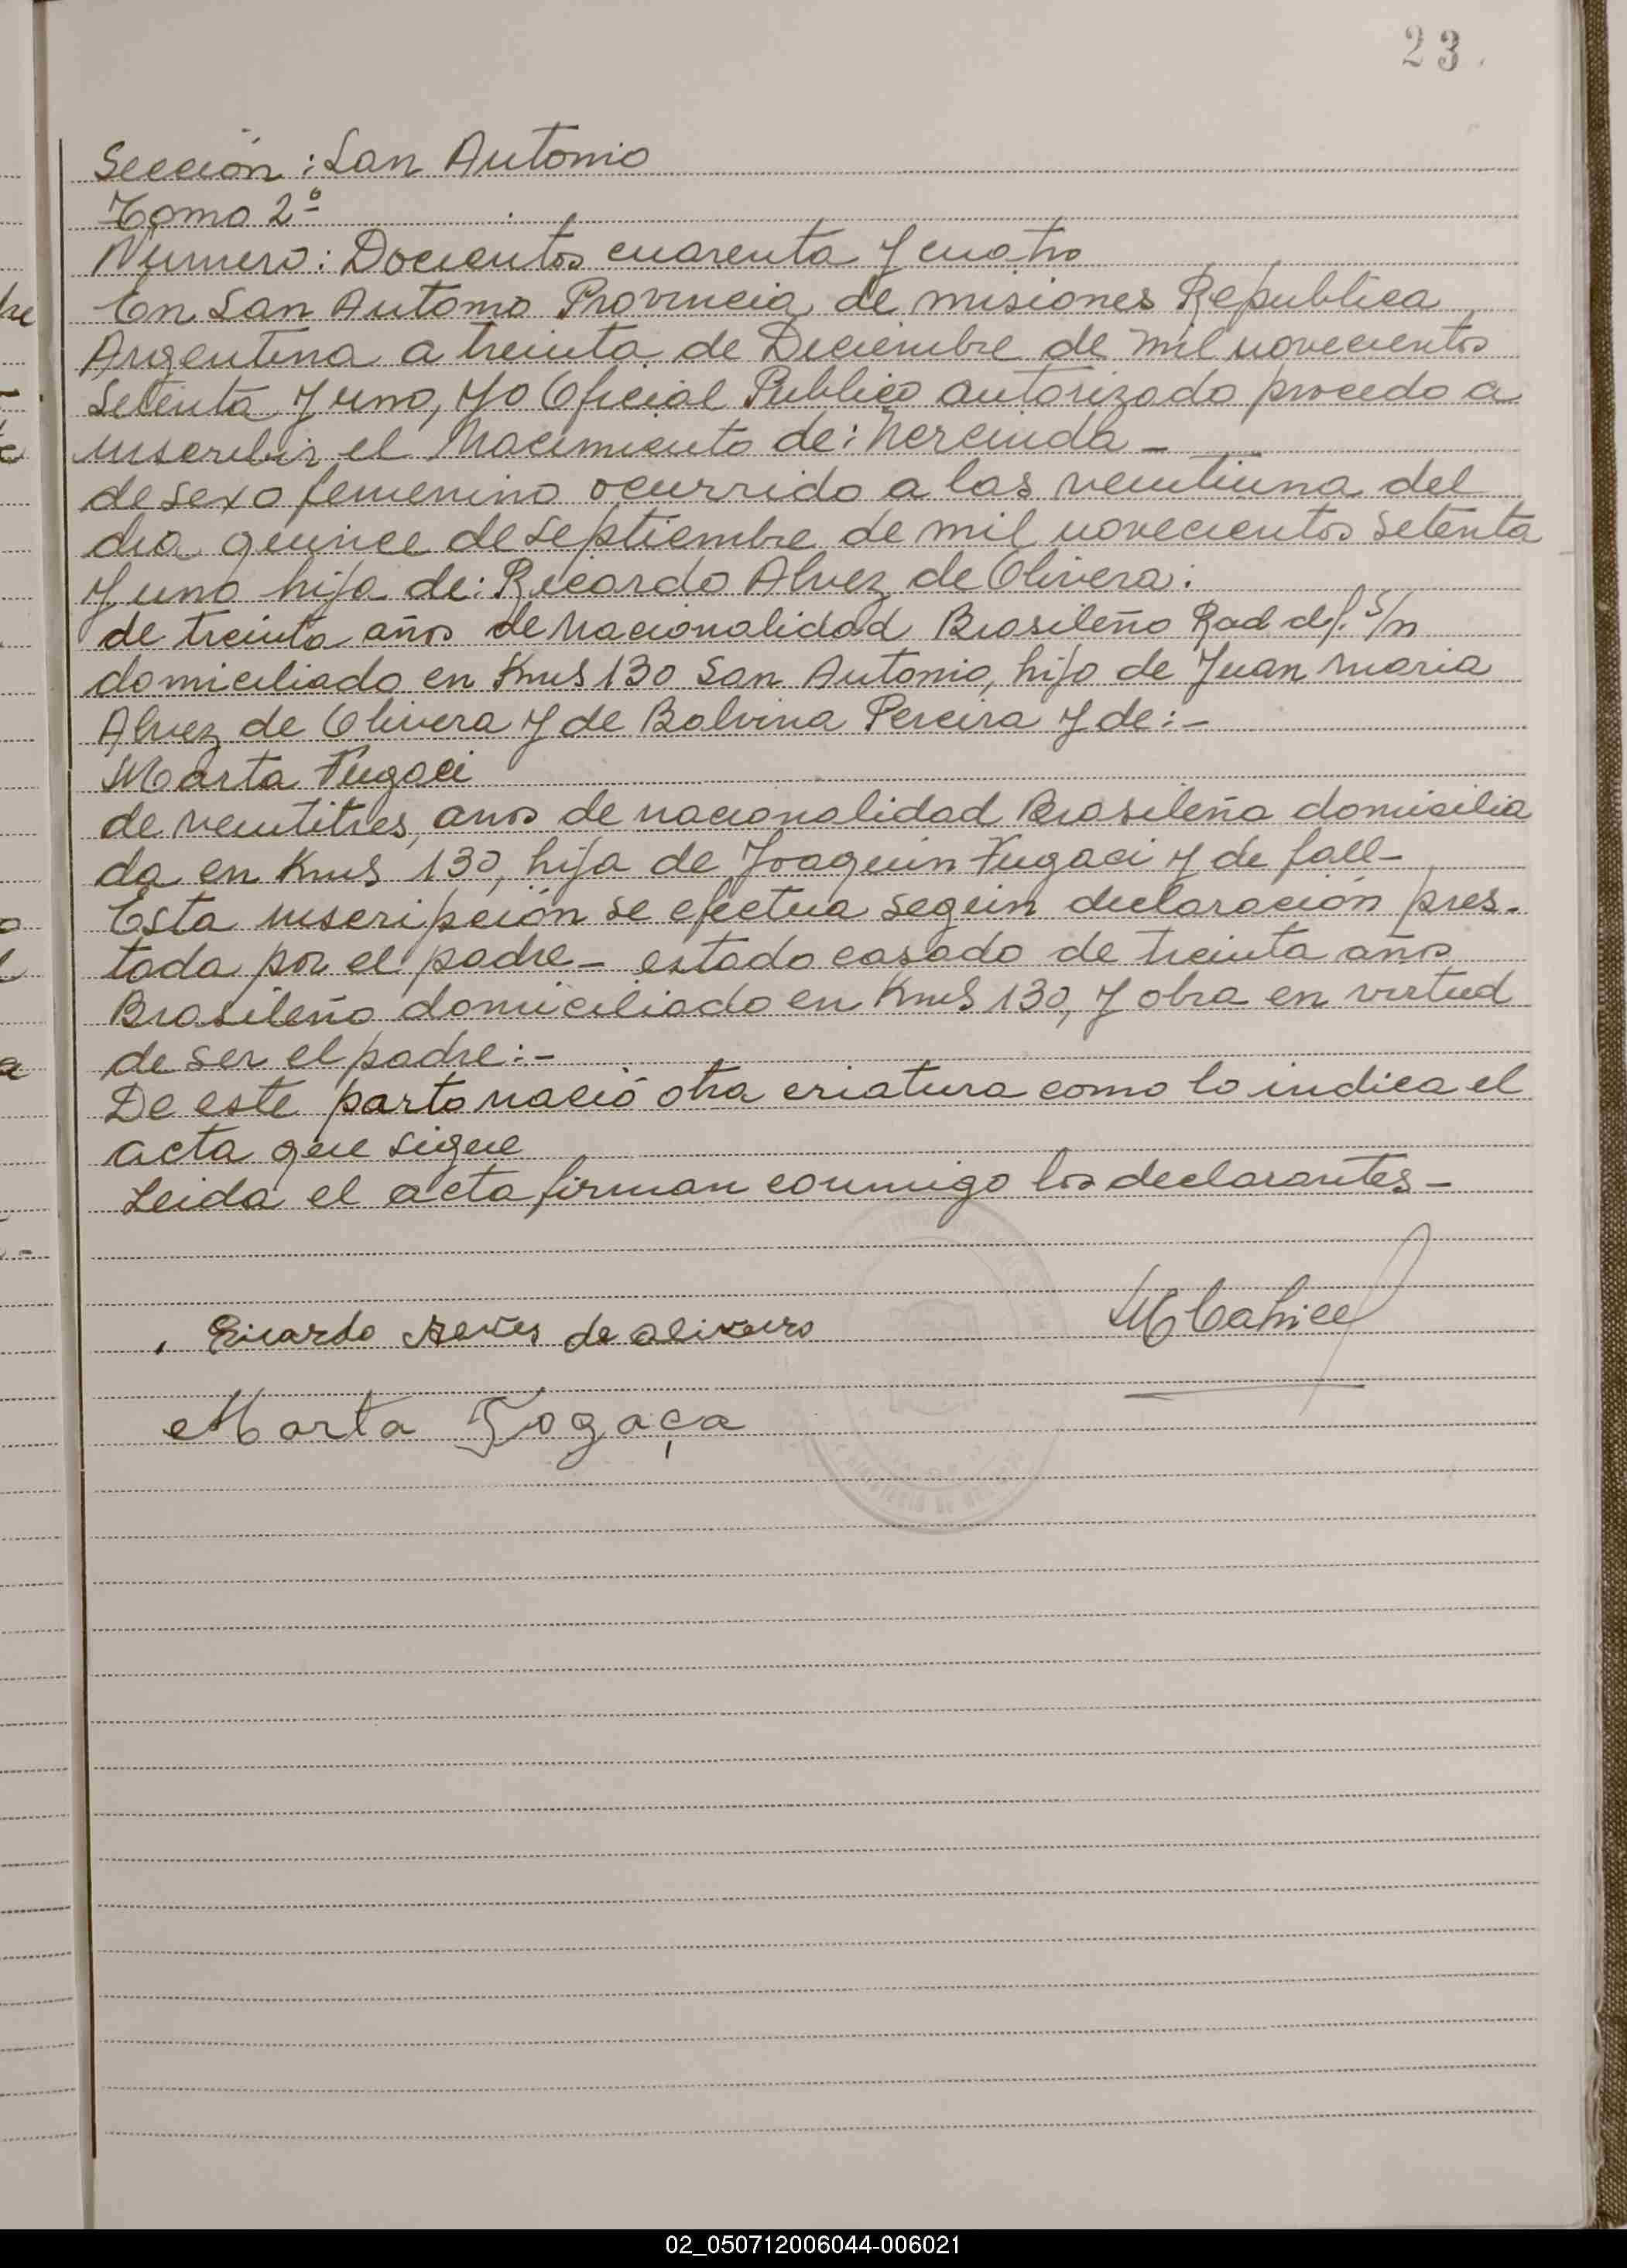 23.
Sección: San Antonio
Tomo 2º
Número: Docientos cuarenta y cuatro
En San Antonio Provincia de misiones Republica
Argentina a treinta de Deciembre de mil novecientos
Setenta y uno, yo Oficial Publico autorizado procedo a
inscribir el Nacimiento de: Nercinda -
de sexo femenino ocurrido a las veintiuna del
dia quince de septiembre de mil novecientos setenta
y uno hija de: Ricardo Alvez de Olivera:
de treinta años de nacionalidad Brasileño Rad def. S/n
domiciliado en Kms 130 San Antonio, hijo de Juan Maria
Alvez de Olivera y de Balvina Pereira y de: -
Marta Fugaci
de veintitres, anos de nacionalidad Brasileña domicilia
da en Kms 130, hija de Joaquin Fugaci y de fall-
Esta inscripción se efectua según declaración pres-
tada por el padre - estado casado de treinta años
Brasileño domiciliado en Kms 130, y obra en virtud
de ser el padre: -
De este parto nació otra criatura como lo indica el
acta que sigue
Leida el acta firman conmigo los declarantes -
Ricardo Alves de oliveiro
Marta Fogaça
02_050712006044-006021